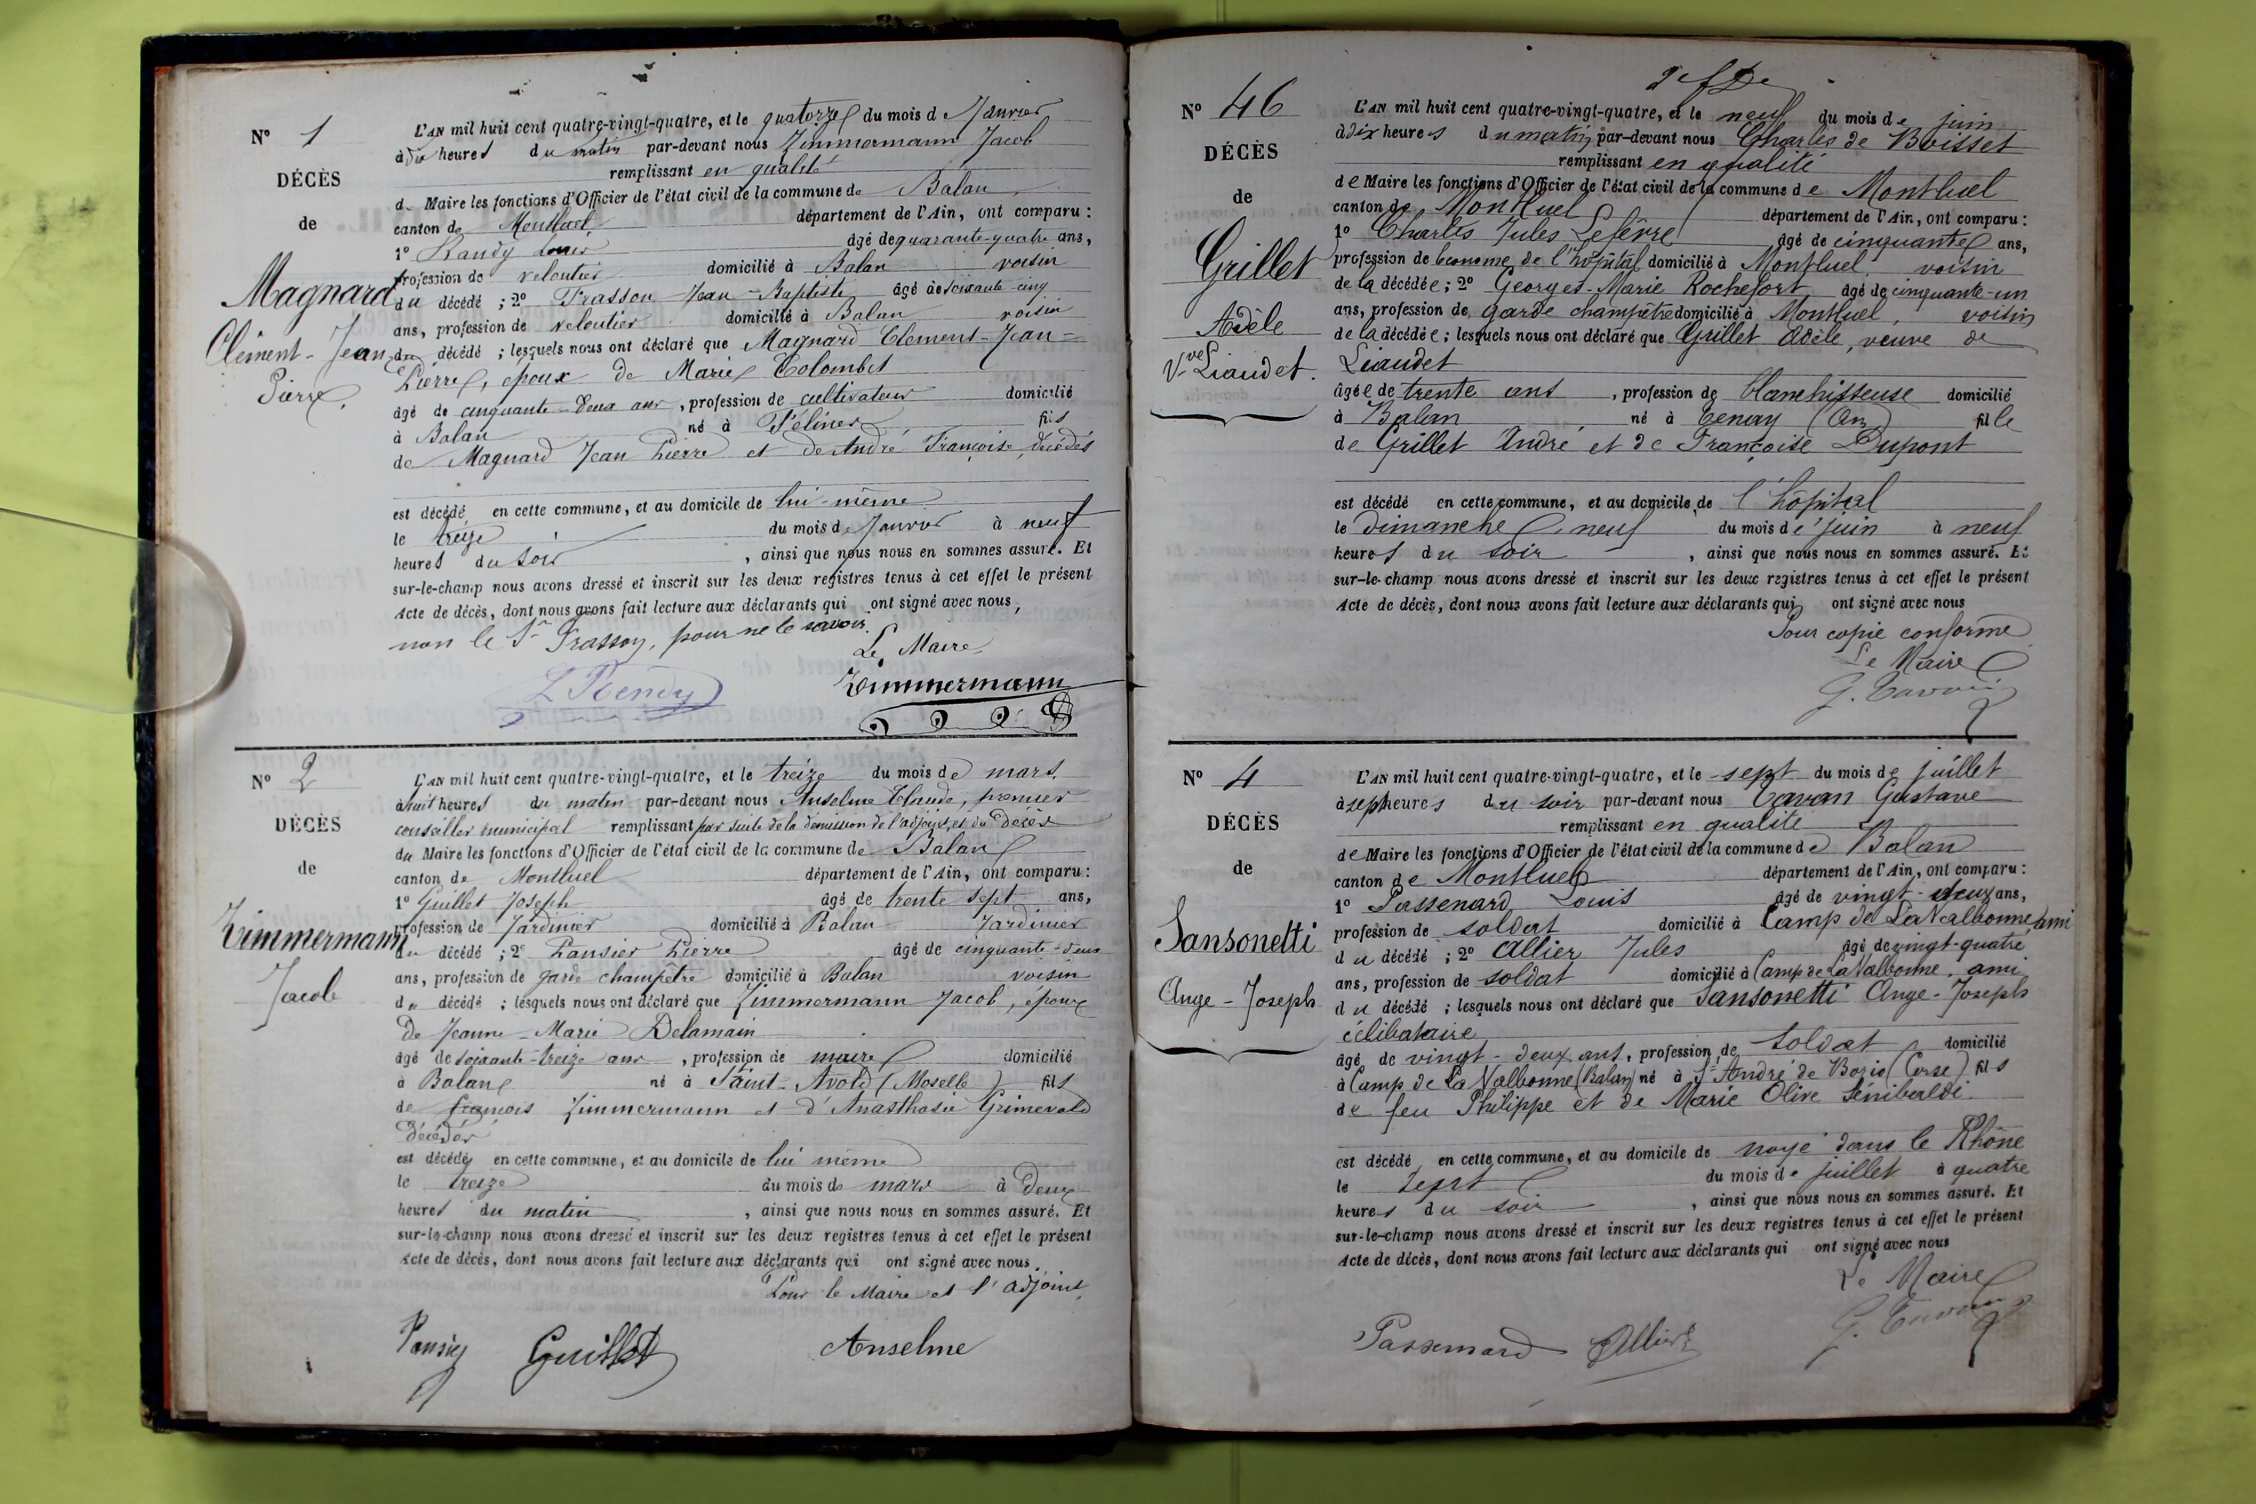 N° 1
DÉCÈS
de
Magnard
Clément-Jean
Pierre.
L'AN mil huit cent quatre-vingt-quatre, et le quatorze du mois d Janvier
à dix heures du matin par-devant nous Zimmermann Jacob
remplissant en qualité
de Maire les fonctions d'Officier de l'état civil de la commune de Balan
canton de Montluel département de l'Ain, ont comparu :
1° Randy Louis âgé de quarante-quatre ans,
profession de veloutier domicilié à Balan voisin
du décédé ; 2° Frasson Jean-Baptiste âgé de soixante-cinq
ans, profession de veloutier domicilié à Balan voisin
du décédé ; lesquels nous ont déclaré que Magnard Clément-Jean-
Pierre, époux de Marie Colombet
âgé de cinquante-deux ans, profession de cultivateur domicilié
à Balan né à Pélines fils
de Magnard Jean Pierre et de André Françoise, décédés
est décédé en cette commune, et au domicile de lui-même
le treize du mois de Janvier à neuf
heures du soir, ainsi que nous nous en sommes assuré. Et
sur-le-champ nous avons dressé et inscrit sur les deux registres tenus à cet effet le présent
Acte de décès, dont nous avons fait lecture aux déclarants qui ont signé avec nous,
non le Sr Frasson, pour ne le savoir.
Le Maire,
L Rendy Zimmermann
N° 2
DÉCÈS
de
Zimmermann
Jacob
L'AN mil huit cent quatre-vingt-quatre, et le treize du mois de mars
à huit heures du matin par-devant nous Anselme Claude, premier
conseiller municipal remplissant par suite de la démission de l'adjoint, et du décès
du Maire les fonctions d'Officier de l'état civil de la commune de Balan
canton de Montluel département de l'Ain, ont comparu :
1° Guillet Joseph âgé de trente sept ans,
profession de Jardinier domicilié à Balan Jardinier
du décédé ; 2° Pansier Pierre âgé de cinquante-deux
ans, profession de garde champêtre domicilié à Balan voisin
du décédé ; lesquels nous ont déclaré que Zimmermann Jacob, époux
de Jeanne-Marie Delamain
âgé de soixante-treize ans, profession de maire domicilié
à Balan né à Saint-Avold (Moselle) fils
de françois Zimmermann et d'Anasthasie Grimevald
décédés
est décédé en cette commune, et au domicile de lui même
le treize du mois de mars à deux
heures du matin, ainsi que nous nous en sommes assuré. Et
sur-le-champ nous avons dressé et inscrit sur les deux registres tenus à cet effet le présent
Acte de décès, dont nous avons fait lecture aux déclarants qui ont signé avec nous.
Pour le Maire et l'adjoint,
Pansier Guillet Anselme
N° 46
DÉCÈS
de
Grillet
Adèle
Vve Liaudet.
L'AN mil huit cent quatre-vingt-quatre, et le neuf du mois de juin
à dix heures du matin par-devant nous Charles de Boisset
remplissant en qualité
de Maire les fonctions d'Officier de l'état civil de la commune de Montluel
canton de Montluel département de l'Ain, ont comparu :
1° Charles Jules Lefèvre âgé de cinquante ans,
profession de Économe de l'hôpital domicilié à Montluel voisin
de la décédée ; 2° Georges-Marie Rochefort âgé de cinquante-un
ans, profession de garde champêtre domicilié à Montluel, voisin
de la décédée ; lesquels nous ont déclaré que Grillet Adèle, veuve de
Liaudet
âgée de trente ans, profession de blanchisseuse domicilié
à Balan né à Tenay (Ain) fille
de Grillet André et de Françoise Dupont
est décédé en cette commune, et au domicile de l'hôpital
le dimanche neuf du mois de juin à neuf
heures du soir, ainsi que nous nous en sommes assuré. Et
sur-le-champ nous avons dressé et inscrit sur les deux registres tenus à cet effet le présent
Acte de décès, dont nous avons fait lecture aux déclarants qui ont signé avec nous
Pour copie conforme
Le Maire
G. Tavan
N° 4
DÉCÈS
de
Sansonetti
Ange-Joseph
L'AN mil huit cent quatre-vingt-quatre, et le sept du mois de juillet
à sept heures du soir par-devant nous Tavan Gustave
remplissant en qualité
de Maire les fonctions d'Officier de l'état civil de la commune de Balan
canton de Montluel département de l'Ain, ont comparu :
1° Passenard Louis âgé de vingt-deux ans,
profession de soldat domicilié à Camp de La Valbonne ami
du décédé ; 2° Allier Jules âgé de vingt-quatre
ans, profession de soldat domicilié à Camp de La Valbonne. ami
du décédé ; lesquels nous ont déclaré que Sansonetti Ange-Joseph
célibataire
âgé de vingt-deux ans, profession de soldat domicilié
à Camp de La Valbonne (Balan) né à St André de Bozio (Corse) fils
de feu Philippe et de Marie Olive Sénibaldi.
est décédé en cette commune, et au domicile de noyé dans le Rhône
le sept du mois de juillet à quatre
heures du soir, ainsi que nous nous en sommes assuré. Et
sur-le-champ nous avons dressé et inscrit sur les deux registres tenus à cet effet le présent
Acte de décès, dont nous avons fait lecture aux déclarants qui ont signé avec nous
Le Maire
Passenard Allier G. Tavan